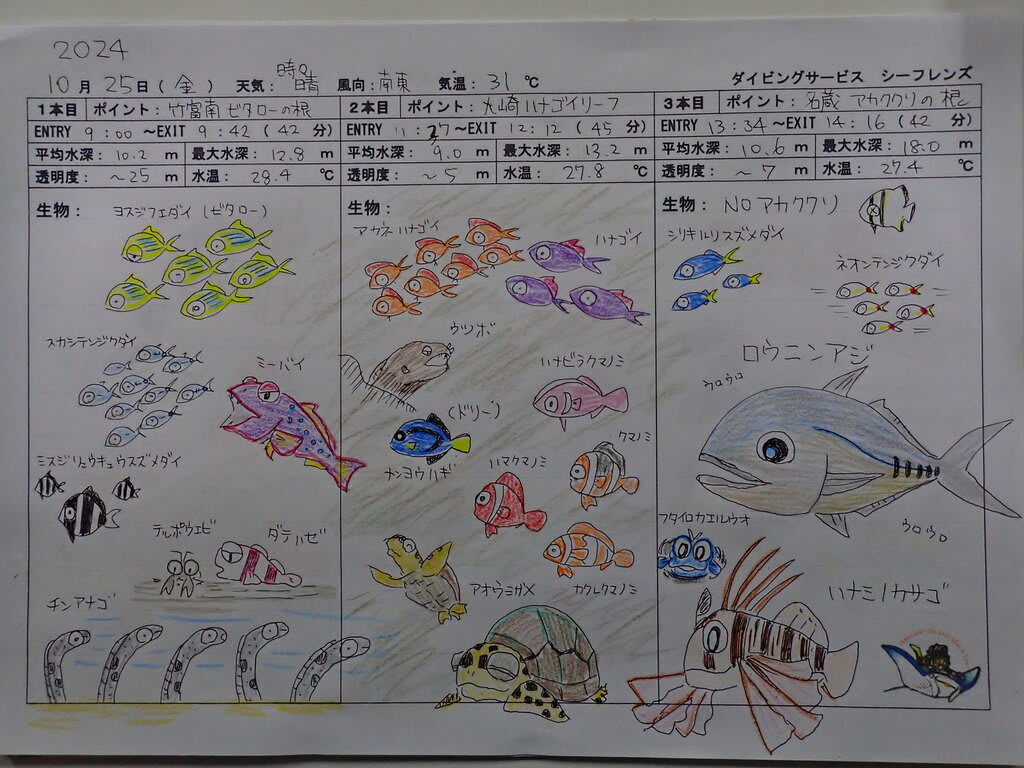 2024
10月25日(金) 天気:時々晴 風向:南東 気温:31℃ ダイビングサービス シーフレンズ
1本目 ポイント:竹富南 ビタローの根
ENTRY 9:00 ~EXIT 9:42 (42分)
平均水深: 10.2 m 最大水深: 12.8 m
透明度: ~25 m 水温: 28.4 ℃
生物: ヨスジフエダイ(ビタロー)
スカシテンジクダイ
ミーバイ
ミスジリュウキュウスズメダイ
テッポウエビ
ダテハゼ
チンアナゴ
2本目 ポイント:大崎ハナゴイリーフ
ENTRY 11:27 ~EXIT 12:12 (45分)
平均水深: 9.0 m 最大水深: 13.2 m
透明度: ~5 m 水温: 27.8 ℃
生物:
アカネハナゴイ
ハナゴイ
ウツボ
ハナビラクマノミ
(ドリー)
ナンヨウハギ
クマノミ
ハマクマノミ
アオウミガメ
カクレクマノミ
3本目 ポイント:名蔵 アカククリの根
ENTRY 13:34 ~EXIT 14:16 (42分)
平均水深: 10.6 m 最大水深: 18.0 m
透明度: ~7 m 水温: 27.4 ℃
生物: NOアカククリ
シリキルリスズメダイ
ネオンテンジクダイ
ロウニンアジ
ウロウロ
ウロウロ
フタイロカエルウオ
ハナミノカサゴ